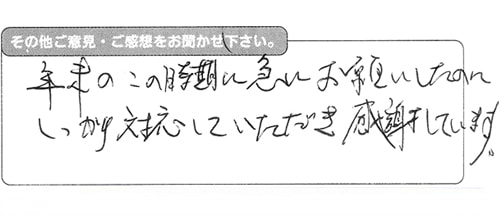 その他ご意見・ご感想をお聞かせ下さい。
年末のこの時期に急にお願いしたのに
しっかり対応していただき感謝しています。